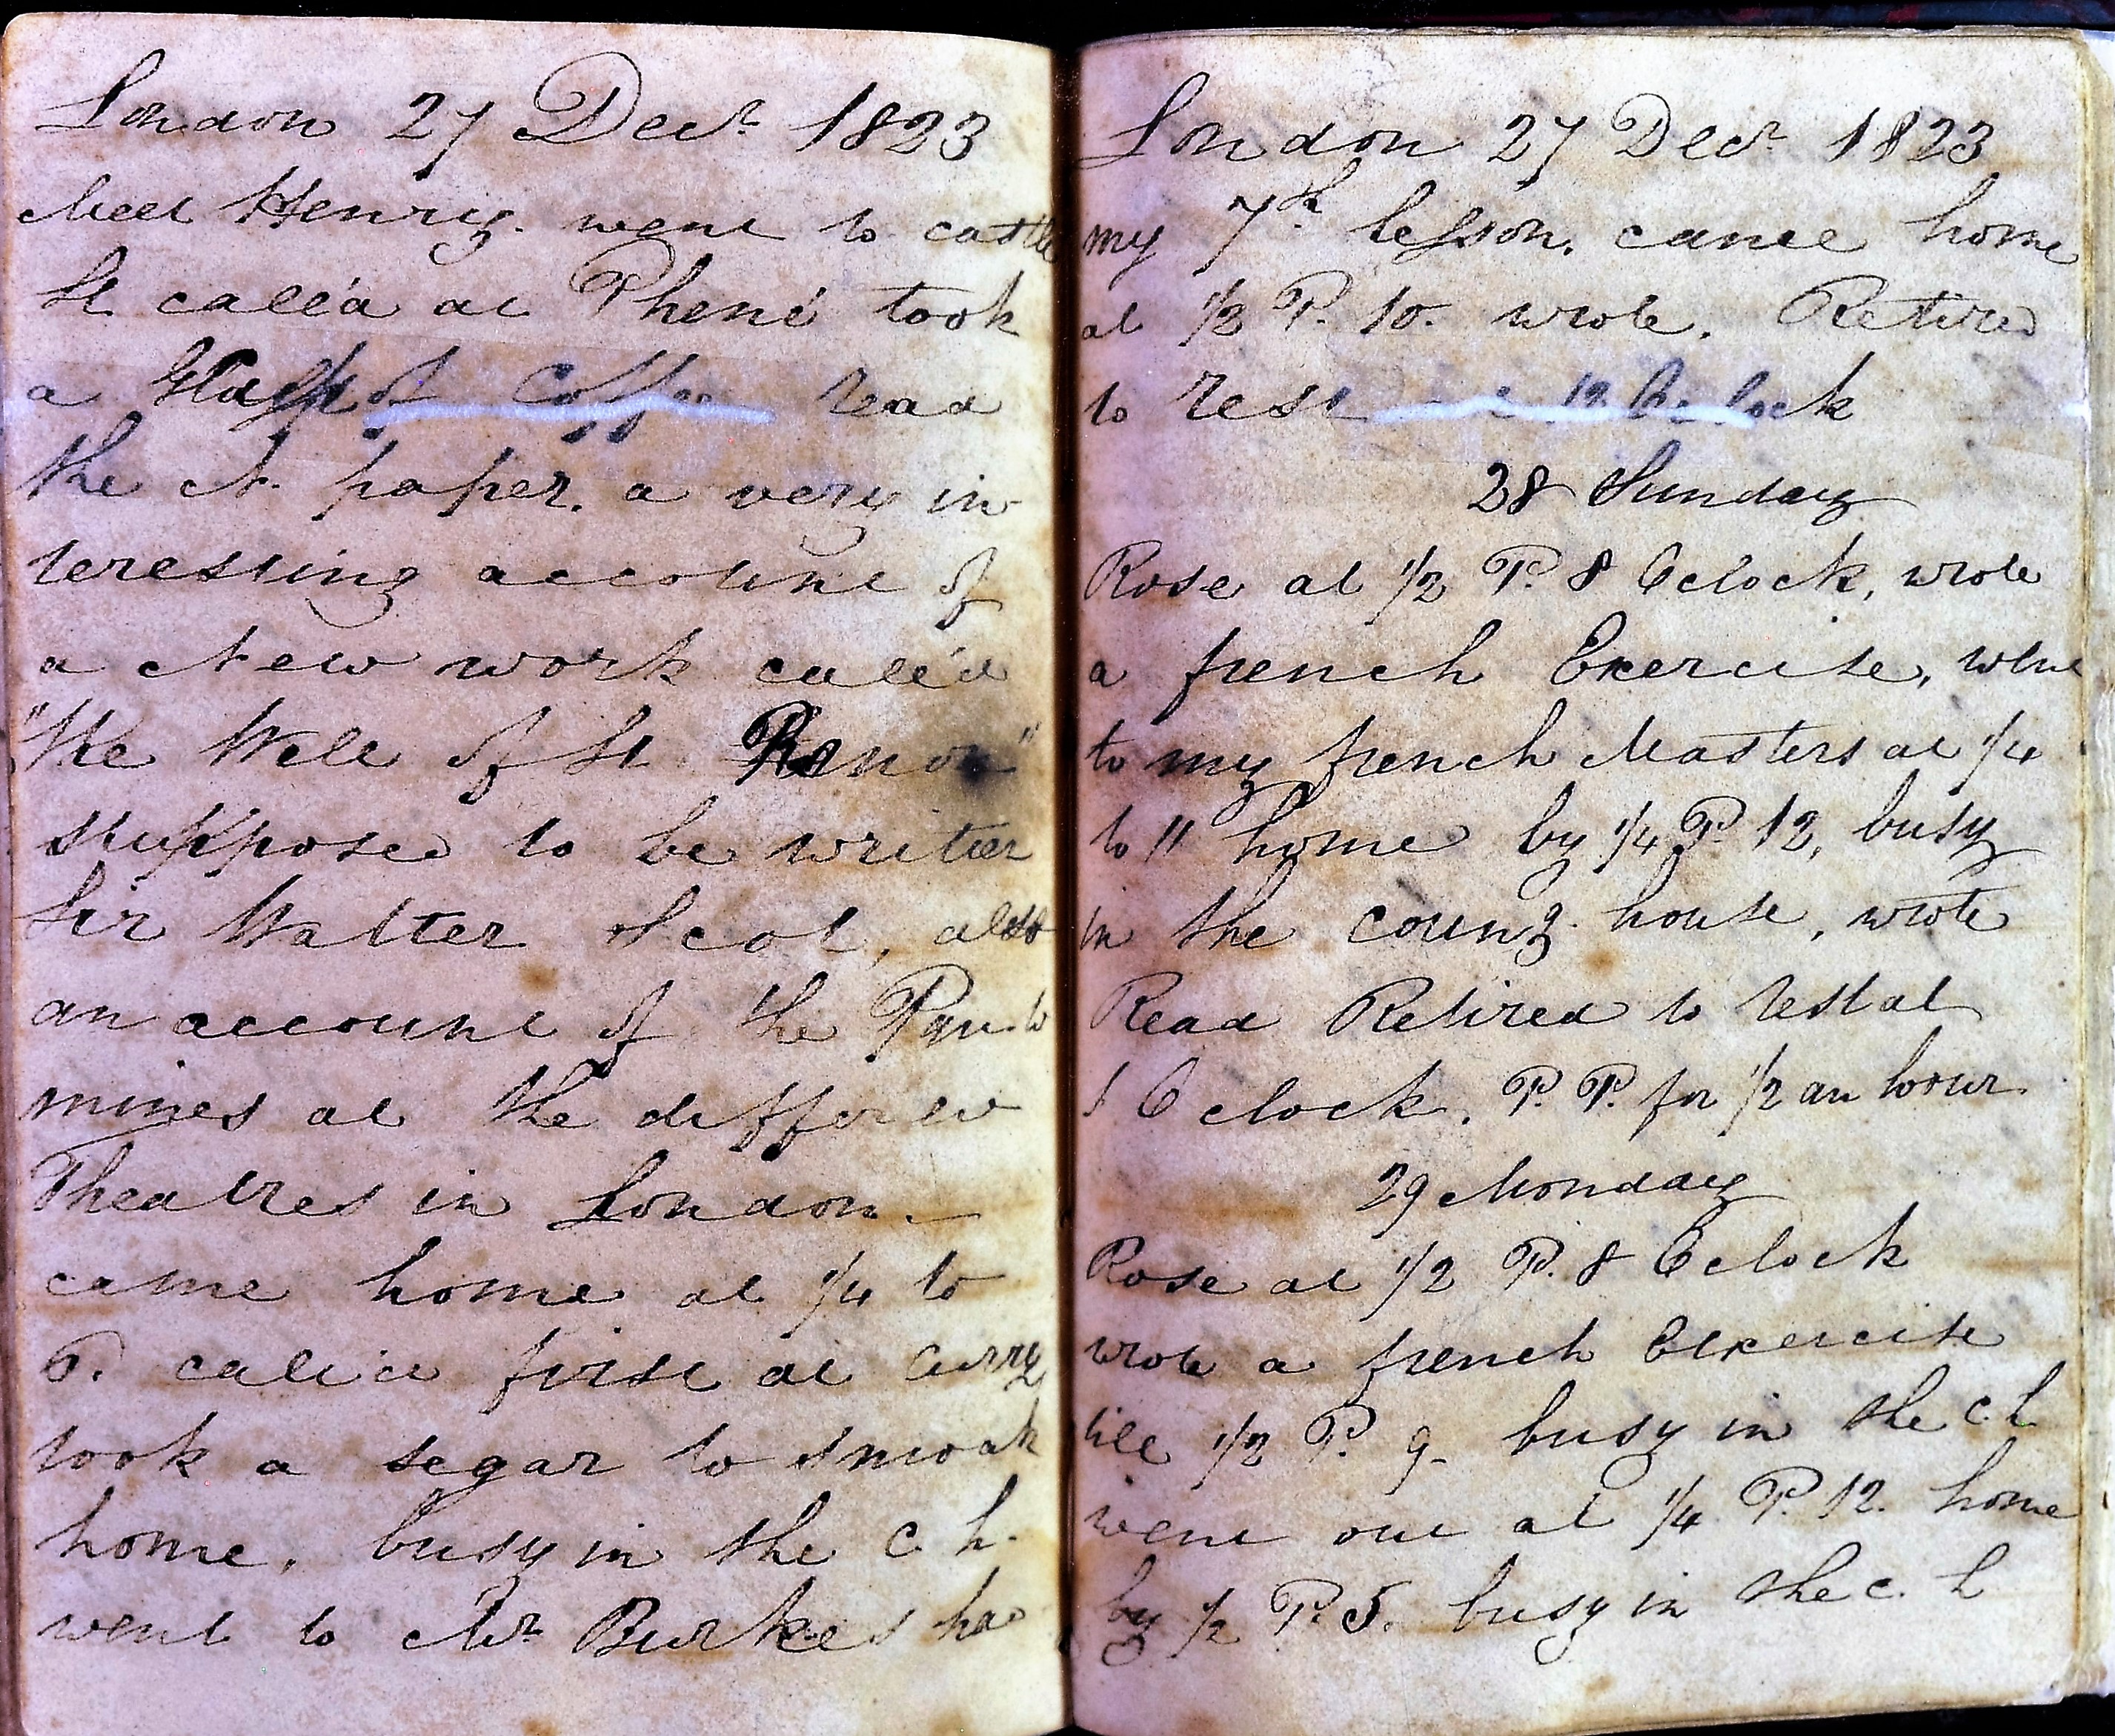 London 27 Decr. 1823
Meet Henry. went to castle
St call'd at Phené took
a Glass of Coffee read
the N. paper. a very in
teresting account of
a New work call'd
"the Well of St Ronon"
suppose to be writter
Sir Walter Scot, also
an account of the Panto
mines at the differen
Theatres in London.
came home at 1/4 to
6. call'd first at
took a segar to smoak
home, busy in the c. h.
went to Mr. Burkes had
London 27 Decr 1823
my 7th. lesson. came home
at 1/2 P. 10. wrote. Retired
to rest 12 Oclock
28 Sunday
Rose at 1/2 P. 8 Oclock, wrote
a french Exercise, went
to my french Masters at 1/4
to 11 home by 1/4 P. 12, busy
in the coung. house, wrote
Read Retired to rest at
1 Oclock. P. P. for 1/2 an hour
29 Monday
Rose at 1/2 P. 8 Oclock
wrote a french Exercise
till 1/2 P. 9. busy in the c. h
went out at 1/4 P. 12. home
by 1/2 P. 5. busy in the c. h